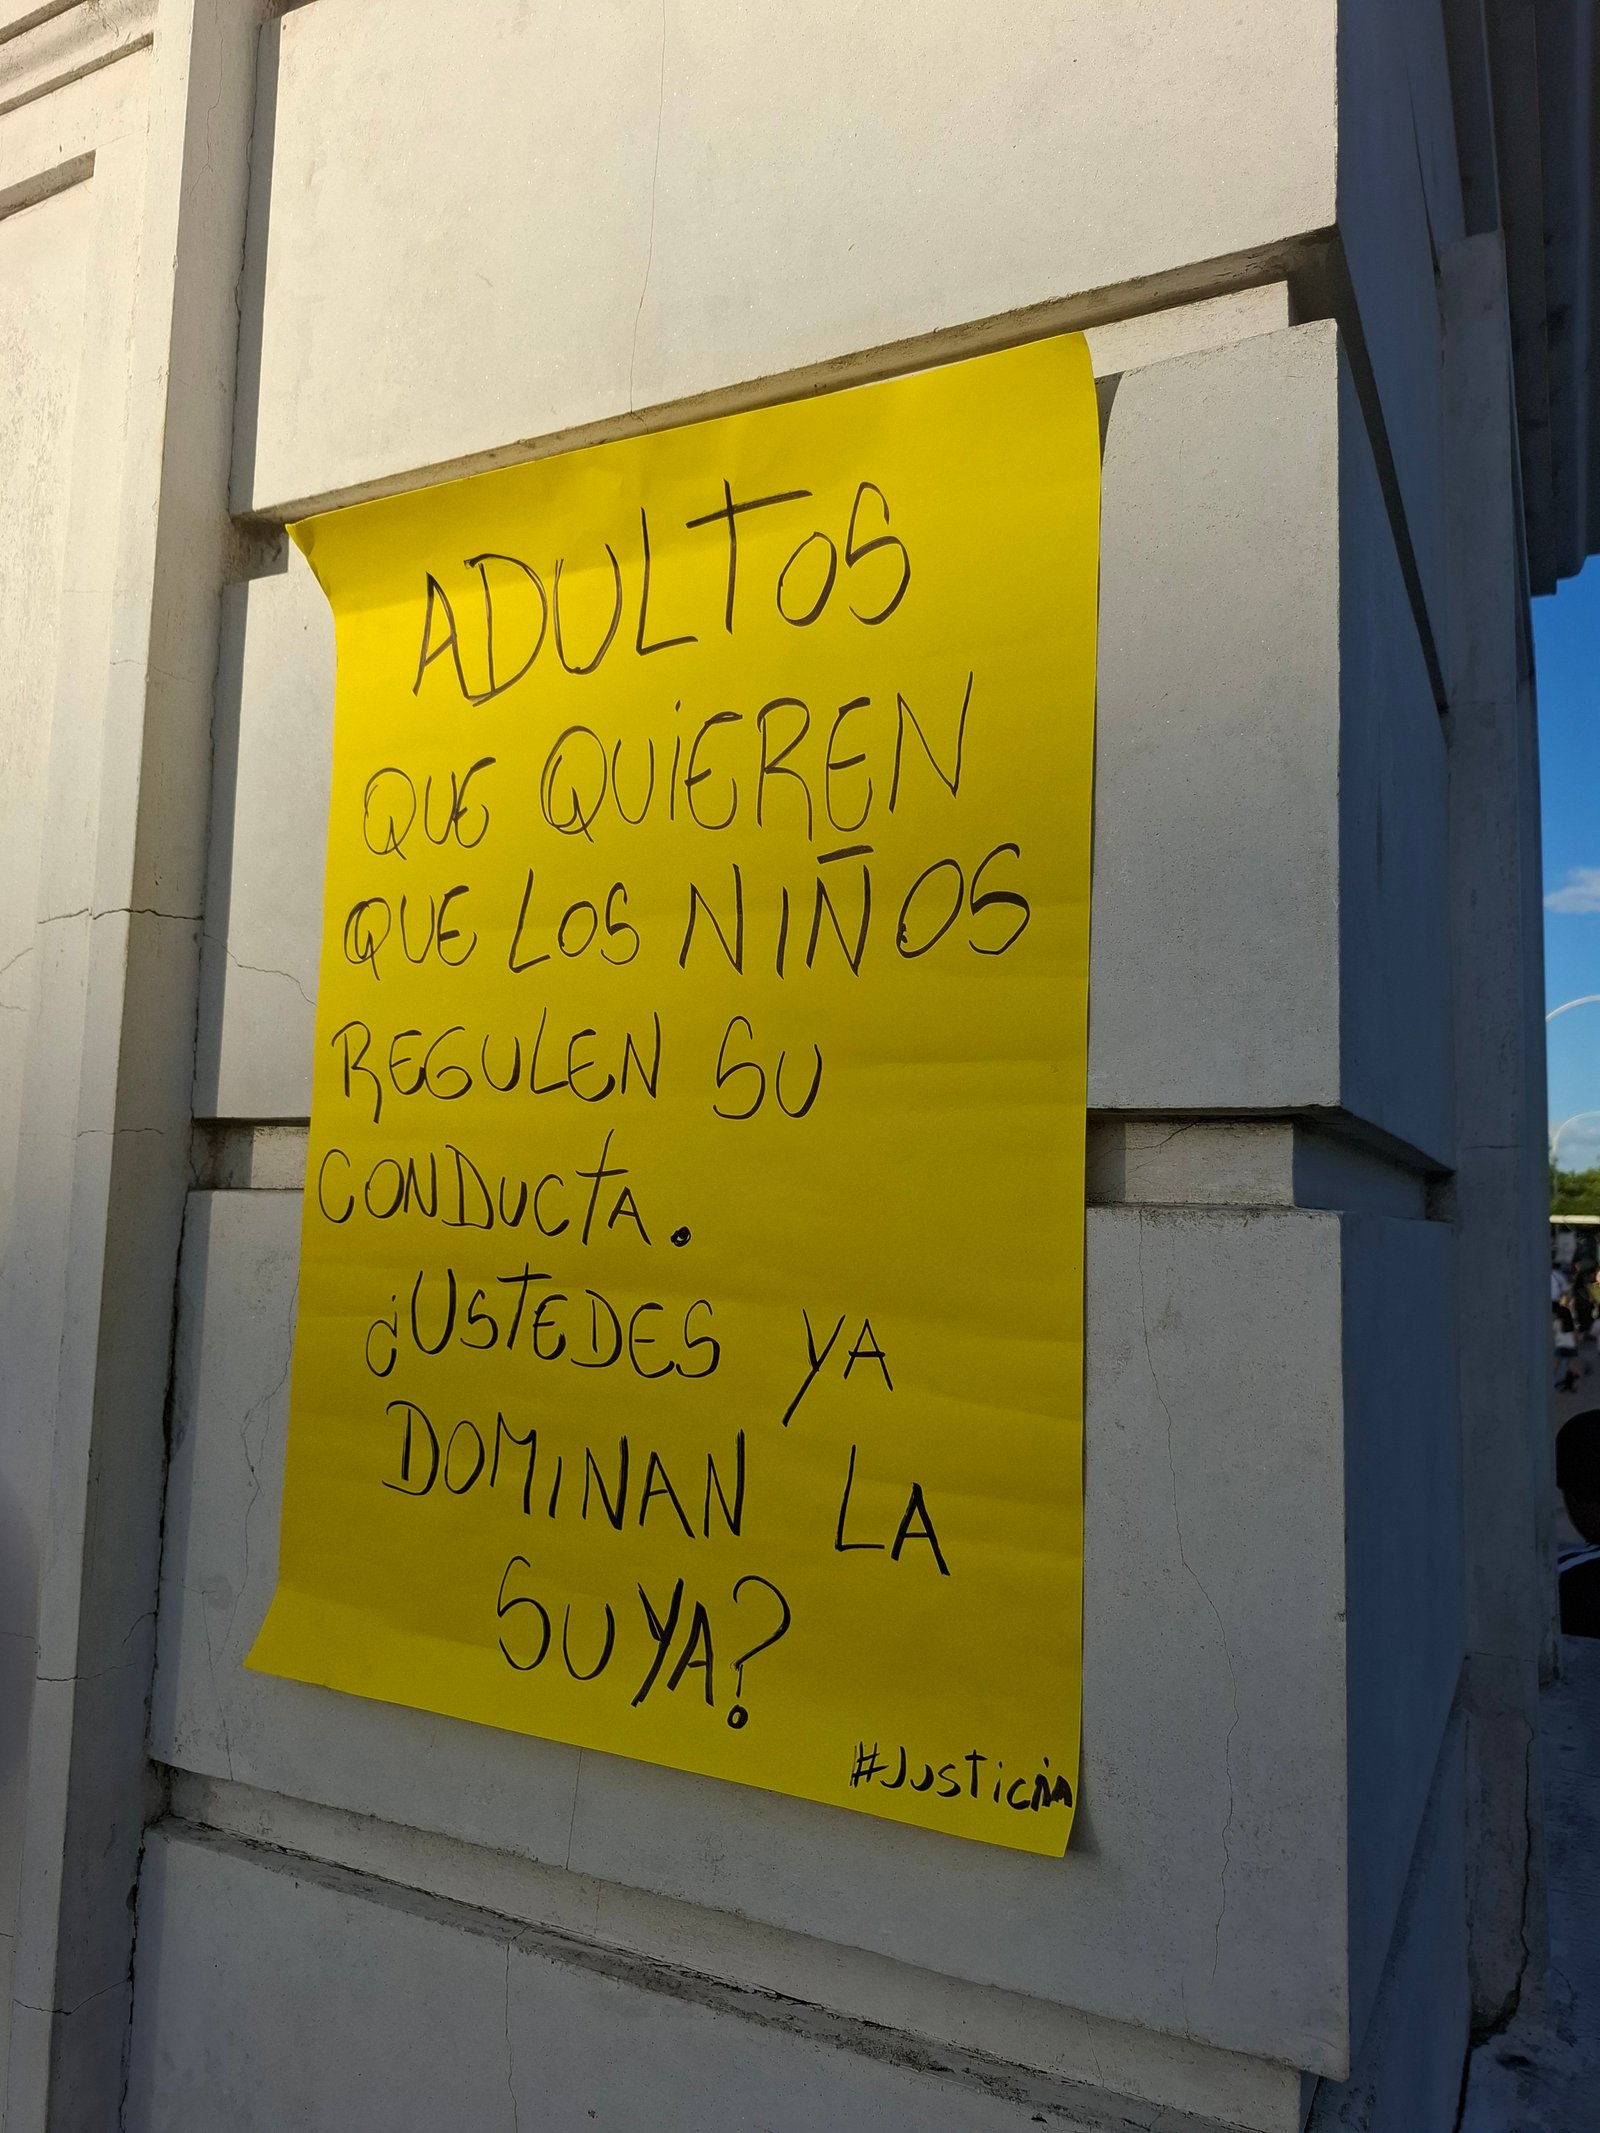 ADULTOS
QUE QUIEREN
QUE LOS NIÑOS
REGULEN SU
CONDUCTA.
¿USTEDES YA
DOMINAN LA
SUYA?
#JUSTICIA